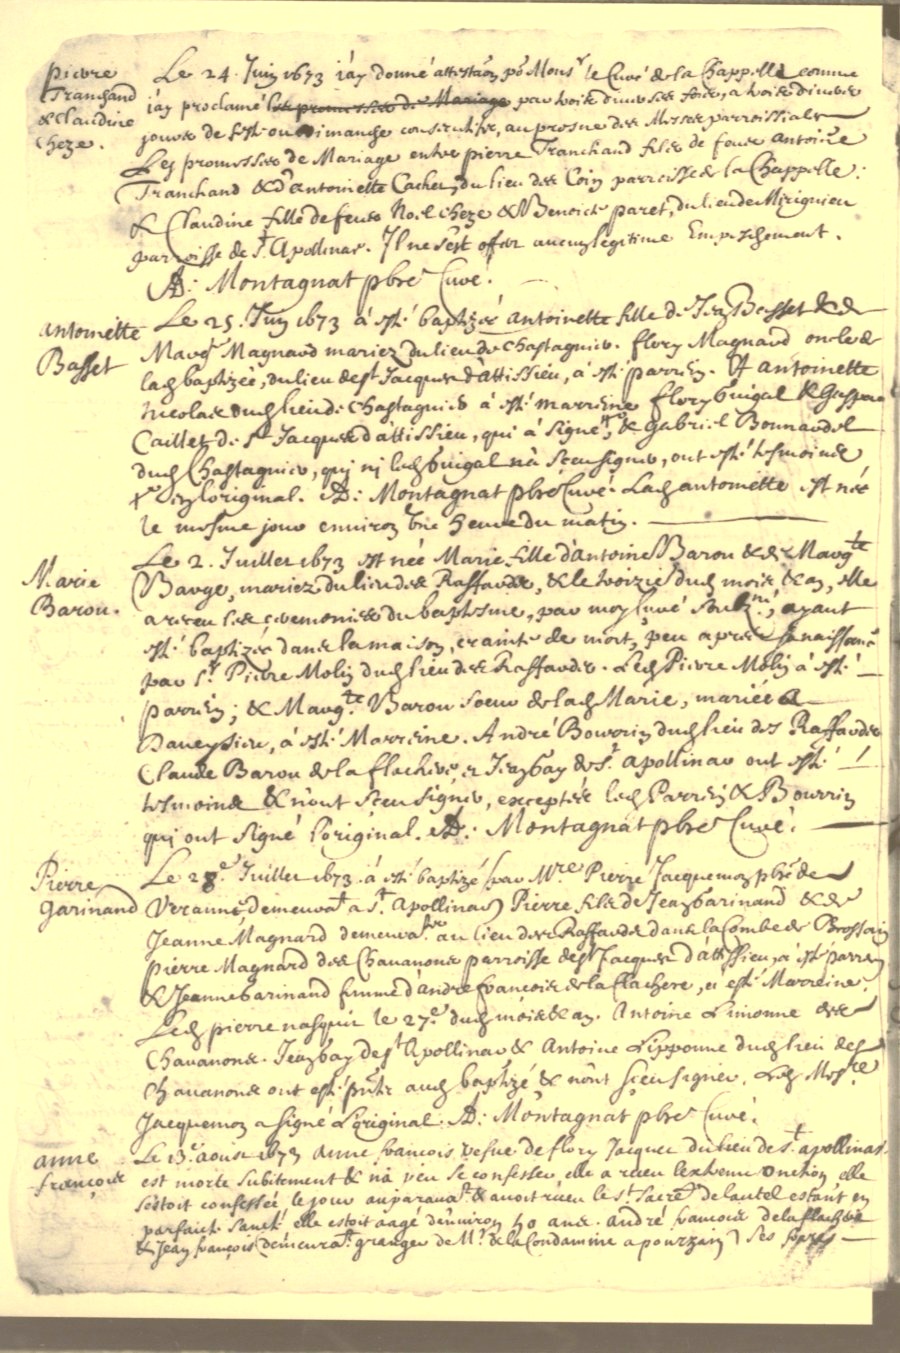 pierre
Tranchand
& Claudine
Cheze.
Le 24. Juin 1673 j'ay donné attestaõn po Monsr le Curé de la Chappelle comme
j'ay proclamé les promesses de Mariage, par trois diverses fois, a trois divers
jours de feste ou Dimanche consecutifs, au prosne des Messes parroissiales
Les promesses de Mariage entre pierre Tranchand fils de feus Antoine
Tranchand & d'antoinette Cachet, du lieu des Coin parroisse de la Chappelle:
& Claudine fille de feus Noel Cheze & Benoicte paret, du lieu de Mirignieu
parroisse de St Apollinar. Il ne s'est offer aucun legitime Empeschement.
A: Montagnat pbre Curé.
antoinette
Basset
Le 25. Juin 1673 à esté baptizée antoinette fille de Jean Basset & de
Margte Magnard mariez du lieu de Chastagnier. flory Magnard oncle de
lad baptizée, du lieu de St Jacques d'attissieu, a esté parrein. Et antoinette
Nicolas dud lieu de Chastagnier à esté marreine flory Guigal & Gaspar
Caillet de St Jacques d'attissieu, qui à signé, & Gabriel Bonnardel
dud Chastagnier, qui ni led Guigal n'à sceu signer, ont esté tesmoins
l'original. A: Montagnat pbre Curé. Lad antoinette est née
le mesme jour environ une heure du matin.
Marie
Baron.
Le 2. Juillet 1673 est née Marie fille d'antoine Baron & de Margte
Barge, mariez du lieu des Raffardes, & le troizie dud mois & an, elle
a receu les ceremonies du baptesme, par moy Curé soubzné, ayant
esté baptizée dans la maison, crainte de mort, peu apres sa naissance
par Sr Pierre Molin dud lieu des Raffardes. Led Pierre Molin à esté
parrein; & Margte Baron soeur de lad Marie, mariée a
Daveysieu, à esté Marreine. André Bourrin dud lieu des Raffardes
Claude Baron de la flachere, et Jean bay de St. Apollinar ont esté
tesmoins & n'ont sceu signer, exceptés led Parrein & Bourrin
qui ont signé l'original. A: Montagnat pbre Curé.
Pierre
Garinand
Le 28e Juillet 1673. à esté baptizé (par Mre Pierre Jacquemon pbre de
demeurat a St. Apollinar) Pierre fils de Jean Garinand & de
Jeanne Magnard demeura au lieu des Raffardes dans la Combe de Brossain
pierre Magnard des Chavanons parroisse de St Jacques d'attissieu, a esté parrein
& Jeanne Garinand femme d'andre francois de la flachere, a esté Marreine.
Led pierre nasquit le 27e dud mois & an. Antoine Limonne des
Chavanons. Jean bay de St Apollinar & Antoine Lipponne dud lieu des
Chavanons ont esté pnts aud baptizé & n'ont sceu signer. Led Messre
Jacquemon a signé L'original. A: Montagnat pbre Curé.
anne
françoise
Le 13e aoust 1673 anne francois vefve de flory Jacquec du lieu de St. apollinar
est morte subitement & n'à peu se confesser, elle a receu l'extreme onction, elle
s'estoit confessée le jour auparavat. & avoit receu le St. Sacret de l'autel estant en
parfaicte santé elle estoit aagé d'environ 50 ans. andré francois de la flachere
& Jean françois (demeurat. granger de Mr. de la Condamine a pourzain) ses freres